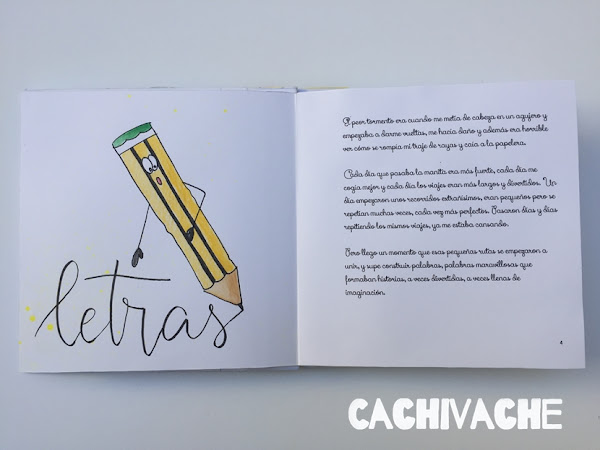 letras
El peor tormento era cuando me metía de cabeza en un agujero y
empezaba a darme vueltas, me hacía daño y además era horrible
ver cómo se rompía mi traje de rayas y caía a la papelera.
Cada día que pasaba la manita era más fuerte, cada día me
cogía mejor y cada día los viajes eran más largos y divertidos. Un
día empezaron unos recorridos extrañísimos, eran pequeños pero se
repetían muchas veces, cada vez más perfectos. Pasaron días y días
repitiendo los mismos viajes, ya me estaba cansando.
Pero llego un momento que esas pequeñas rutas se empezaron a
unir, y supe construir palabras, palabras maravillosas que
formaban historias, a veces divertidas, a veces llenas de
imaginación.
CACHIVACHE